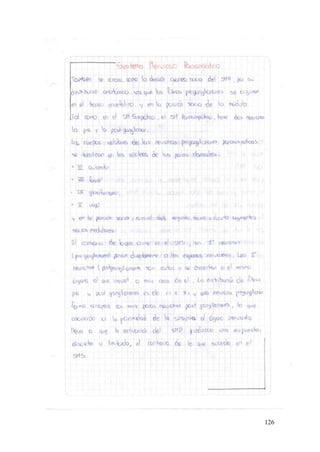 Sistema Nervioso Parasimpático
También se conoce como la división craneo sacra del SNP, ya su
distribución anatómica, ya que las fibras preganglionares se originan
en el tronco encefálico y en la porción sacra de la médula.
Tal como en el SN Simpático, el SN Parasimpático, tiene dos neuronas
la pre y la post-ganglionar.
Los cuerpos celulares de las neuronas preganglionares parasimpáticas
se localizan en los núcleos de los pares craneales:
• III
• VII facial
• IX glosofaríngeo
• X vago
y en la porción sacra, en el segundo, tercero y cuarto segmentos
sacros medulares.
El contrario de lo que ocurre en el SNS, las 1° neuronas
(preganglionares) pasan directamente a los órganos. Las 2°
neuronas (postganglionares) son cortas y se encuentran en el mismo
órgano al que inervan o muy cerca de él. La distribución de fibras
pre y post ganglionares es de, y que neurona preganglionar
hace sinapsis con muy pocas neuronas post ganglionares, lo que
a la proximidad de la sinapsis al órgano inervado
lleva a que la activación del SNP produzca una respuesta
discreta y limitada, al contrario de lo que sucede en el
SNS.
126